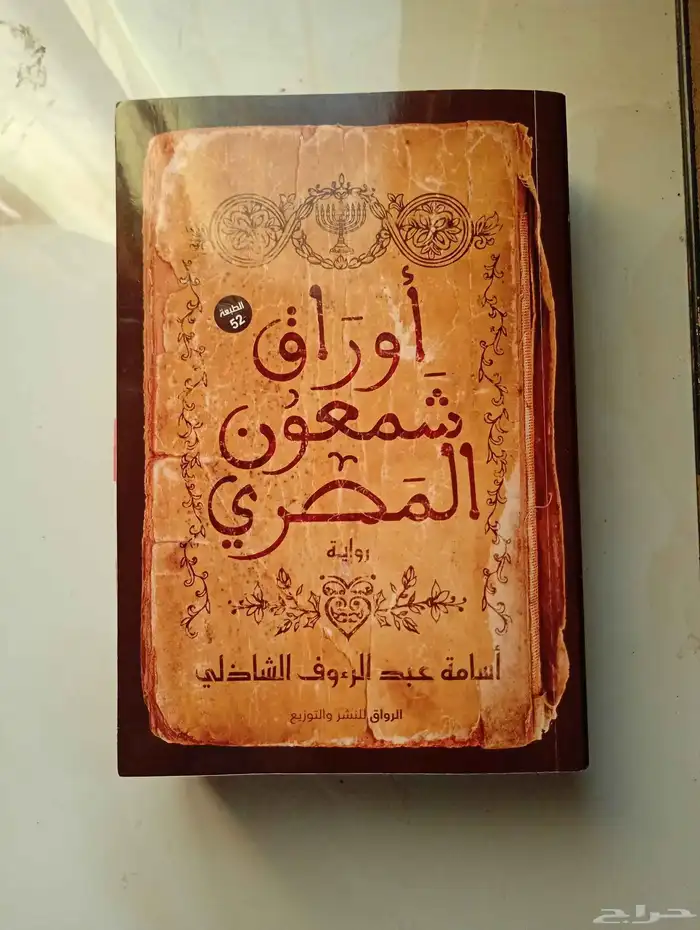 الطبعة
52
أوراق
شمعون
المصري
رواية
أسامة عبد الرءوف الشاذلي
الرواق للنشر والتوزيع
حراج